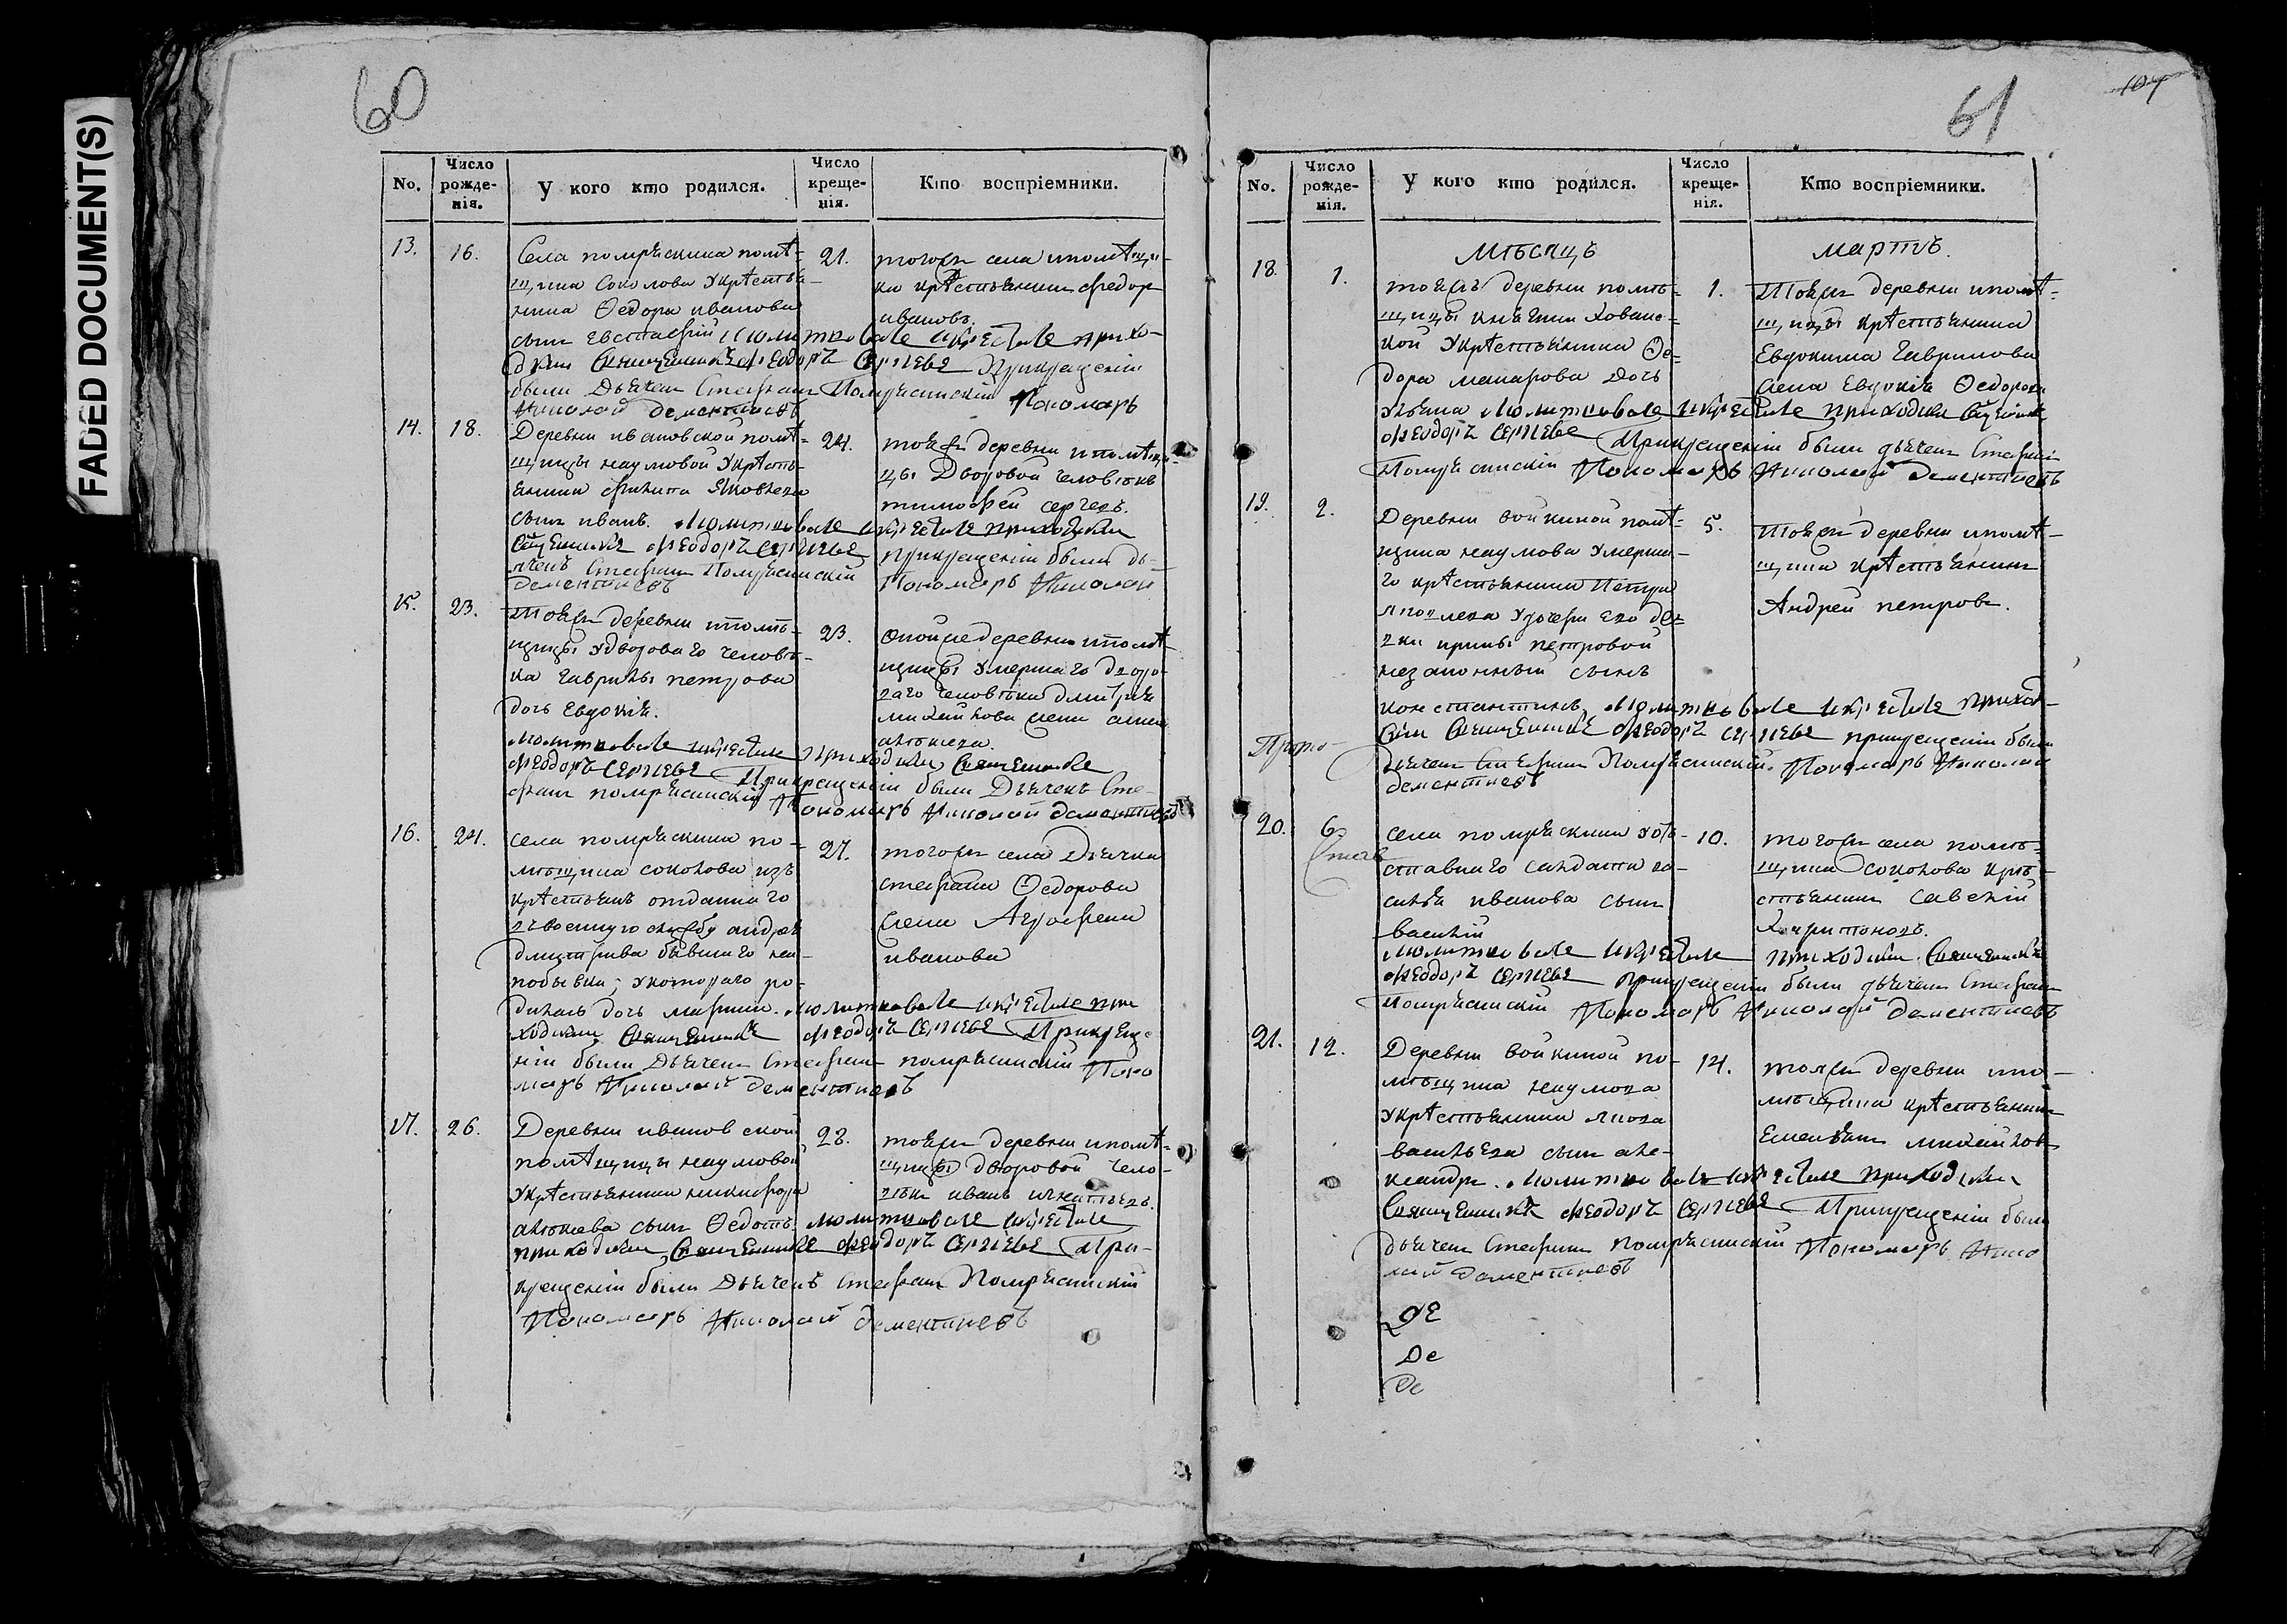 FADED DOCUMENT(S)
60
No.
Число рожде- нія.
У кого кто родился.
Число креще- нія.
Кто воспріемники.
13. 16. Села полуряскина помѣ-
щика Соколова у крѣстья-
нина Ѳедора иванова
сынъ Евстафій молитвовалъ и крестилъ прихо-
дкой священникъ Феодоръ Сергіевъ при крещеніи
были Дьячекъ Стефанъ Полуряскинскій Пономарь
Николай Дементиевъ
21. тогожъ села и помѣщи-
ка крѣстьянинъ Федоръ
ивановъ.
14. 18. Деревни ивановской помѣ-
щицы наумовой у крѣсть-
янина филипа яковлева
сынъ иванъ. молитвовалъ и крестилъ приходской
священникъ Феодоръ Сергіевъ при крещеніи были дь-
ячекъ Стефанъ Полуряскинскій Пономарь Николай
Дементиевъ
24. тояжъ деревни и помѣщи-
цы Дворовой человѣкъ
тимофей сергеевъ.
15. 23. Тояжъ деревни и помѣ-
щицы у дворового человѣ-
ка гаврилы петрова
дочь Евдокія.
молитвовалъ и крестилъ приходской священникъ
Феодоръ Сергіевъ При крещеніи были Дьячекъ Сте-
фанъ полуряскинскій Пономарь Николай Дементиевъ
23. оной же деревни и помѣ-
щицы умершаго дворо-
ваго человѣка дмитрия
михайлова жена анна
16. 24. села полуряскина по-
мѣщика соколова изъ
крѣстьянъ отданнаго
въ военную службу андрея
дмитриева бывшаго на
побывки; у котораго ро-
дилась дочь марина. молитвовалъ и крестилъ при
ходской священникъ Феодоръ Сергіевъ При креще-
ніи были Дьячекъ Стефанъ полуряскинскій Поно
марь Николай Дементиевъ
27. тогожъ села Дьячка
стефана Ѳедорова
жена Агрофена
иванова
17. 26. Деревни ивановской
помѣщицы наумовой
у крѣстьянина никифора
сынъ Ѳедотъ молитвовалъ и крестилъ
приходской священникъ Феодоръ Сергіевъ При-
крещеніи были Дьячекъ Стефанъ Полуряскинскій
Пономарь Николай Дементиевъ
28. тояжъ деревни и помѣ-
щицы дворовой чело-
вѣкъ иванъ игнатьевъ.
61
107
No.
Число рожде- нія.
У кого кто родился.
Число креще- нія.
Кто воспріемники.
мѣсяцъ мартъ.
18. 1. тояжъ деревни помѣ-
щицы княгини Хованс-
кой у крѣстьянина Ѳе-
дора макарова дочь
ульяна молитвовалъ и крестилъ приходской священникъ
Феодоръ Сергіевъ При крещеніи были дьячекъ Стефанъ
Полуряскинскій Пономарь Николай Дементиевъ
1. Тояжъ деревни и помѣ-
щицы крѣстьянина
Евдокима гаврилова
жена Евдокія Ѳедорова
19. 2. Деревни войкиной помѣ-
щика наумова умерша-
го крѣстьянина Петра
яковлева у дочери его дев-
ки ирины петровой
незаконный сынъ
константинъ. молитвовалъ и крестилъ приход-
ской священникъ Феодоръ Сергіевъ при крещеніи были
дьячекъ Стефанъ Полуряскинскій. Пономарь Николай
Дементиевъ
5. Тояжъ деревни и помѣ-
щика крѣстьянинъ
Андрей петровъ.
Прото-
20. 6. села полуряскина у от-
ставнаго салдата ва-
силья иванова сынъ
василій
молитвовалъ и крестилъ приходской священникъ
Феодоръ Сергіевъ При крещеніи были дьячекъ Стефанъ
Полуряскинскій Пономарь Николай Дементиевъ
10. тогожъ села помѣ-
щика соколова крѣ-
стьянинъ савелій
Харитоновъ.
21. 12. Деревни войкиной по-
мѣщика наумова
у крѣстьянина якова
васильева сынъ але-
ксандръ. молитвовалъ и крестилъ приходской
священникъ Феодоръ Сергіевъ При крещеніи были
дьячекъ Стефанъ Полуряскинскій Пономарь Нико
лай Дементиевъ
14. тояжъ деревни и по-
мѣщика крѣстьянинъ
Емельянъ михайловъ
де
Де
Де